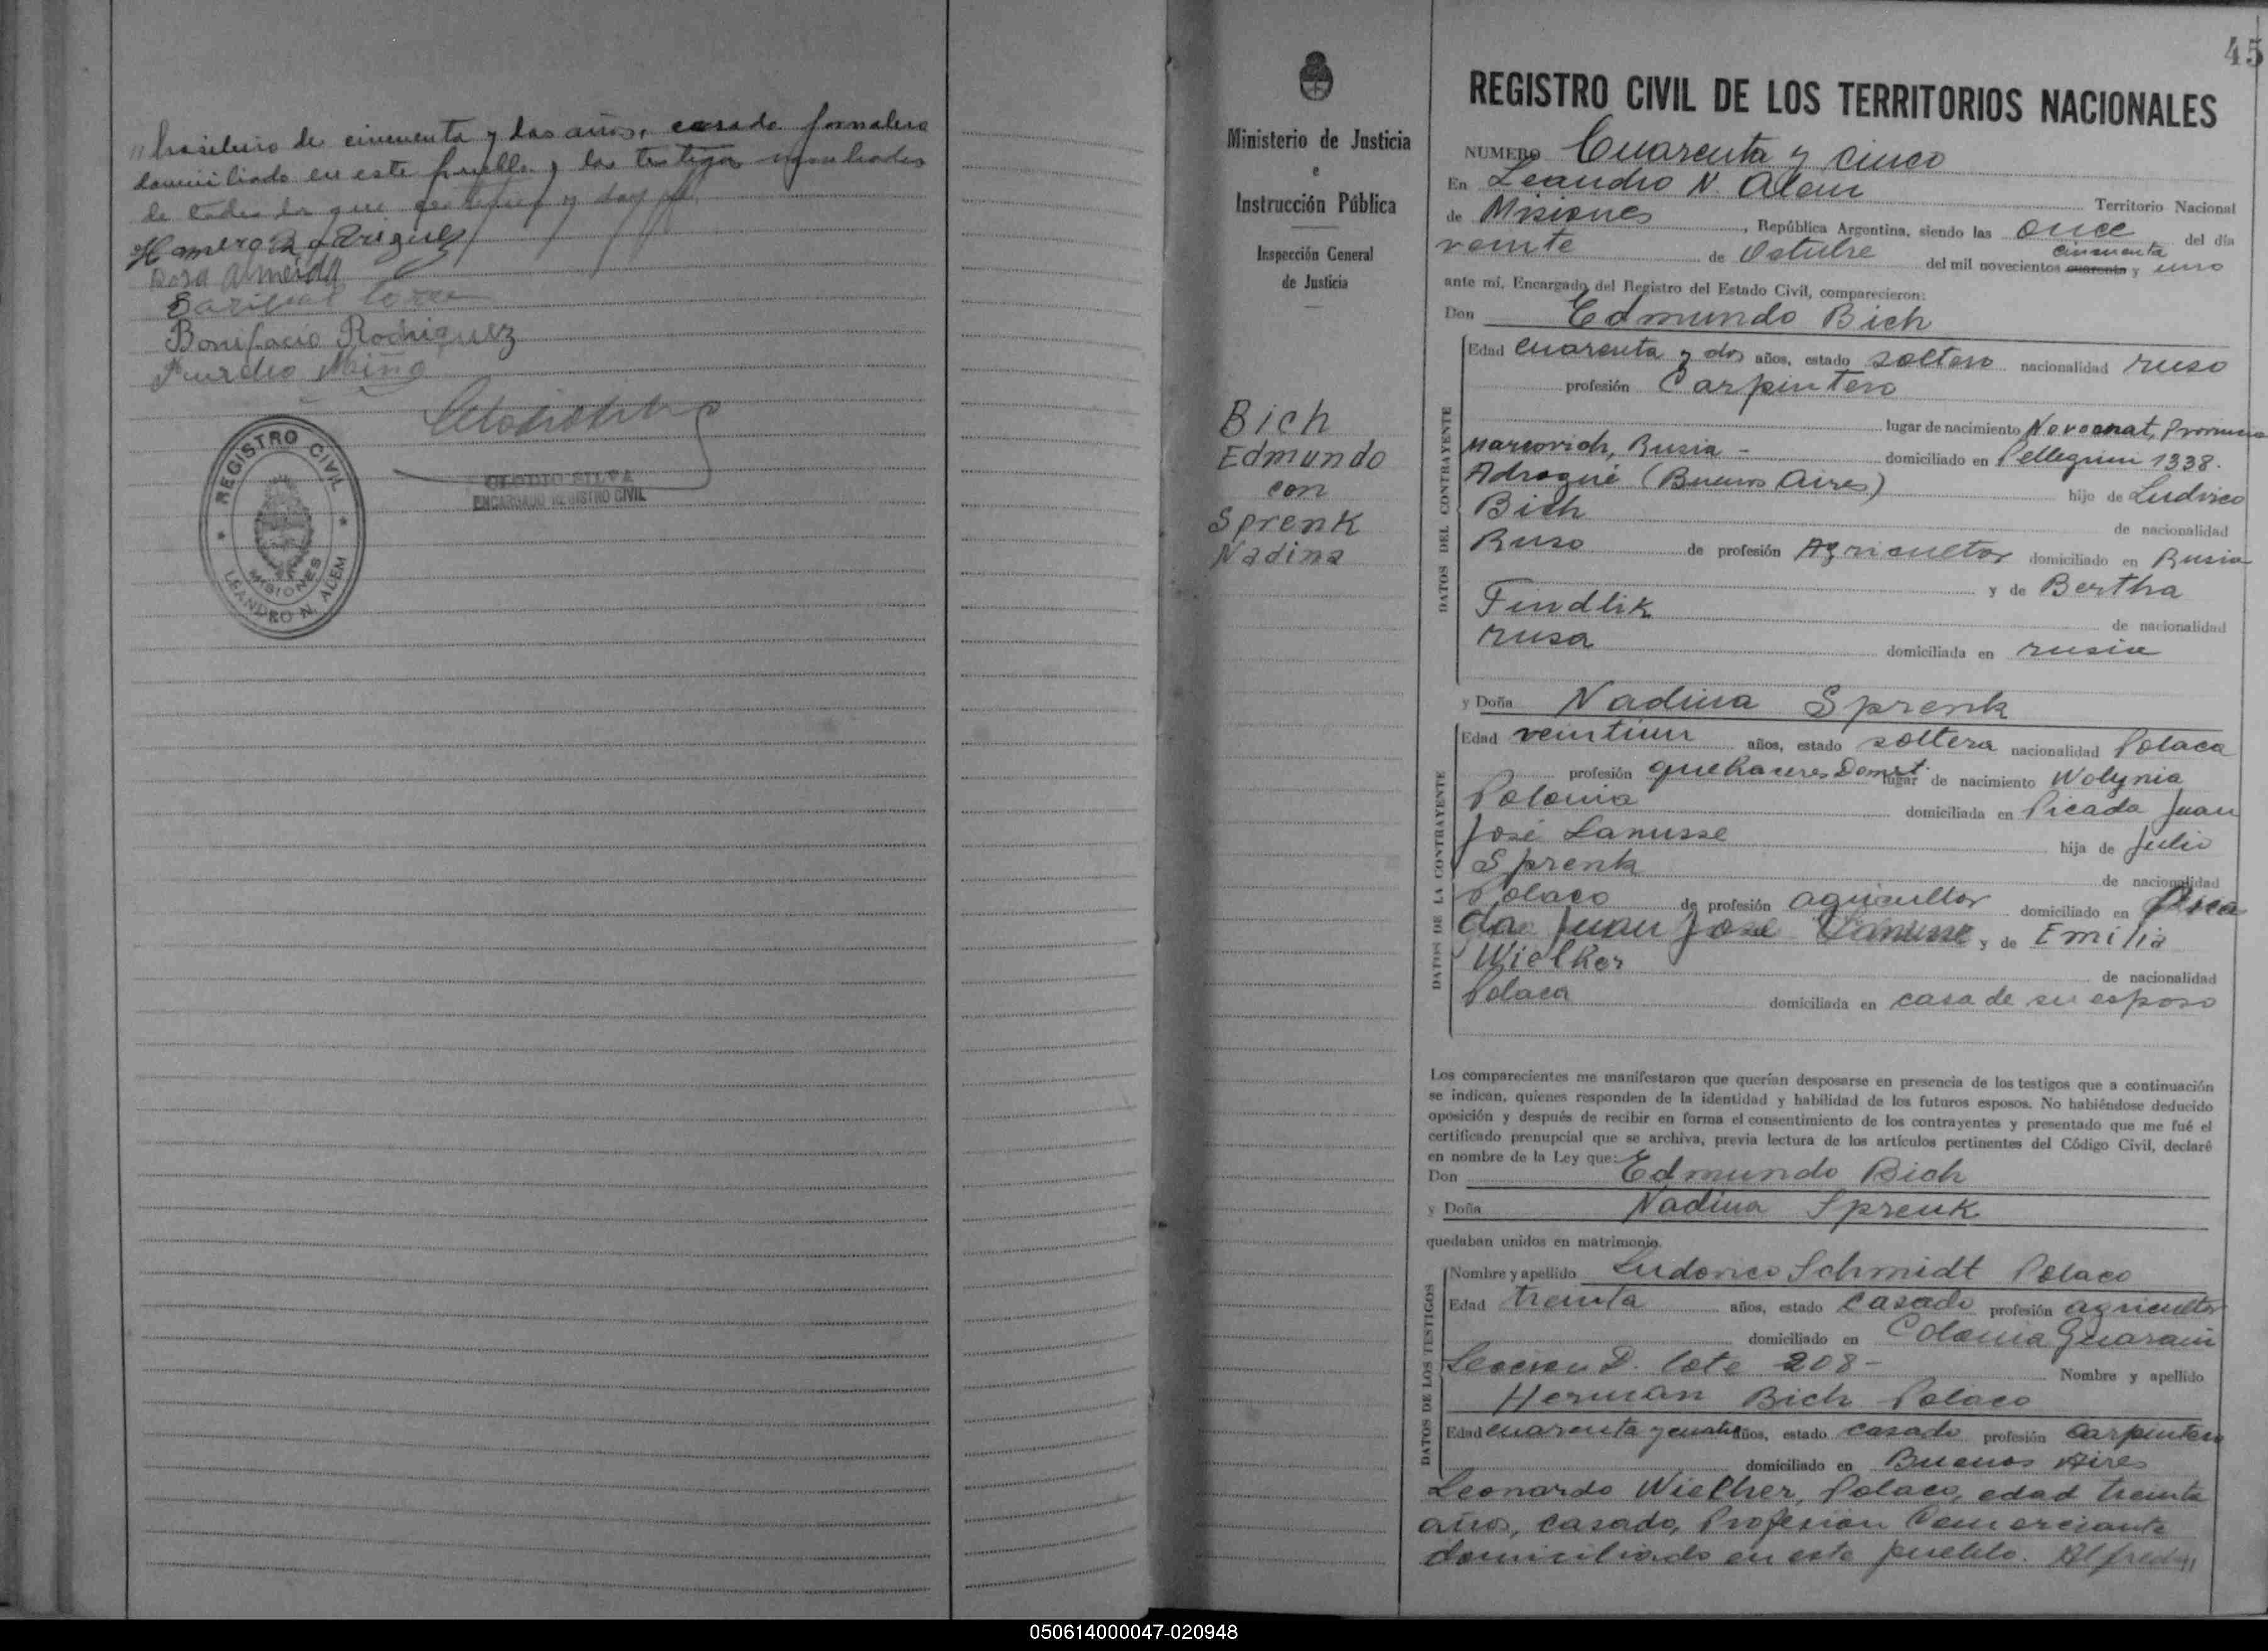 brasilero de cincuenta y dos años, casado jornalero
domiciliado en este pueblo y los testigos nombrados
de todo lo que certifico y doy fe
Homero Rodriguez
Rosa Almeida
Bonifacio Rodriguez
Aurelio Miño
CLODIO SILVA
ENCARGADO REGISTRO CIVIL
REGISTRO CIVIL
MISIONES
LEANDRO N. ALEM
45
Ministerio de Justicia
e
Instrucción Pública
Inspección General
de Justicia
Bich
Edmundo
con
Sprenk
Nadina
REGISTRO CIVIL DE LOS TERRITORIOS NACIONALES
NUMERO Cuarenta y cinco
En Leandro N. Alem Territorio Nacional
de Misiones, República Argentina, siendo las once del día
veinte de Octubre del mil novecientos cuarenta cincuenta y uno
ante mí, Encargado del Registro del Estado Civil, comparecieron:
Don Edmundo Bich
DATOS DEL CONTRAYENTE
Edad cuarenta y dos años, estado soltero nacionalidad ruso
profesión Carpintero
lugar de nacimiento Provincia
Rusia - domiciliado en Pellegrini 1338.
Adrogué (Buenos Aires) hijo de Ludvico
Bich de nacionalidad
Ruso de profesión Agricultor domiciliado en Rusia
y de Bertha
Findlik de nacionalidad
rusa domiciliada en rusia
y Doña Nadina Sprenk
DATOS DE LA CONTRAYENTE
Edad veintiun años, estado soltera nacionalidad Polaca
profesión quehaceres Domst. lugar de nacimiento Wolynia
Polonia domiciliada en Picada Juan
José Lanusse hija de Julio
Sprenk de nacionalidad
Polaco de profesión agricultor domiciliado en Pica
da Juan José Lanusse y de Emilia
Wielker de nacionalidad
Polaca domiciliada en casa de su esposo
Los comparecientes me manifestaron que querían desposarse en presencia de los testigos que a continuación
se indican, quienes responden de la identidad y habilidad de los futuros esposos. No habiéndose deducido
oposición y después de recibir en forma el consentimiento de los contrayentes y presentado que me fué el
certificado prenupcial que se archiva, previa lectura de los artículos pertinentes del Código Civil, declaré
en nombre de la Ley que:
Don Edmundo Bich
y Doña Nadina Sprenk
quedaban unidos en matrimonio.
DATOS DE LOS TESTIGOS
Nombre y apellido Ludovico Schmidt Polaco
Edad treinta años, estado casado profesión agricultor
domiciliado en Colonia Guarani
Seccion D. lote 208- Nombre y apellido
Herman Bich Polaco
Edad cuarenta y cuatro años, estado casado profesión carpintero
domiciliado en Buenos Aires
Leonardo Wielher, Polaco, edad treinta
años, casado, Profesion Comerciante
domiciliado en este pueblo. Alfredo,,
050614000047-020948